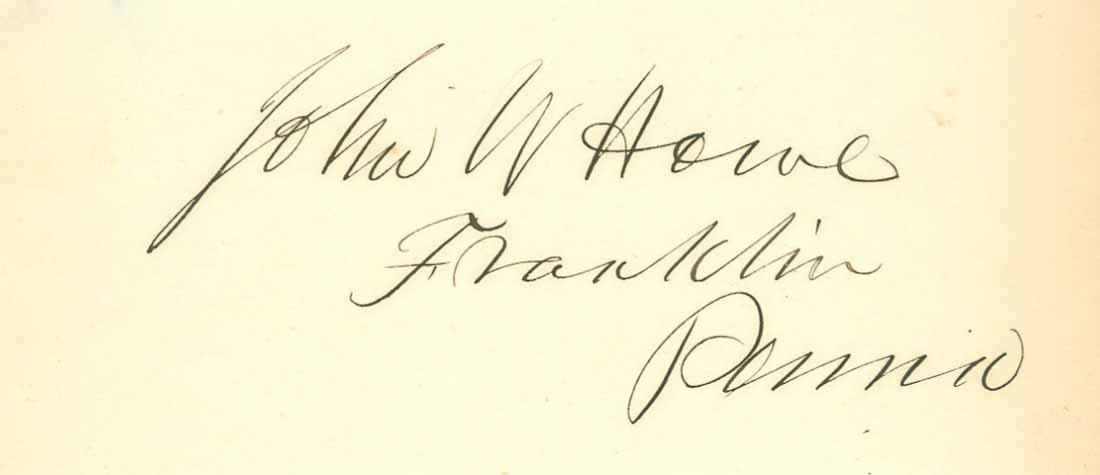 John W Howe
Franklin
Penna